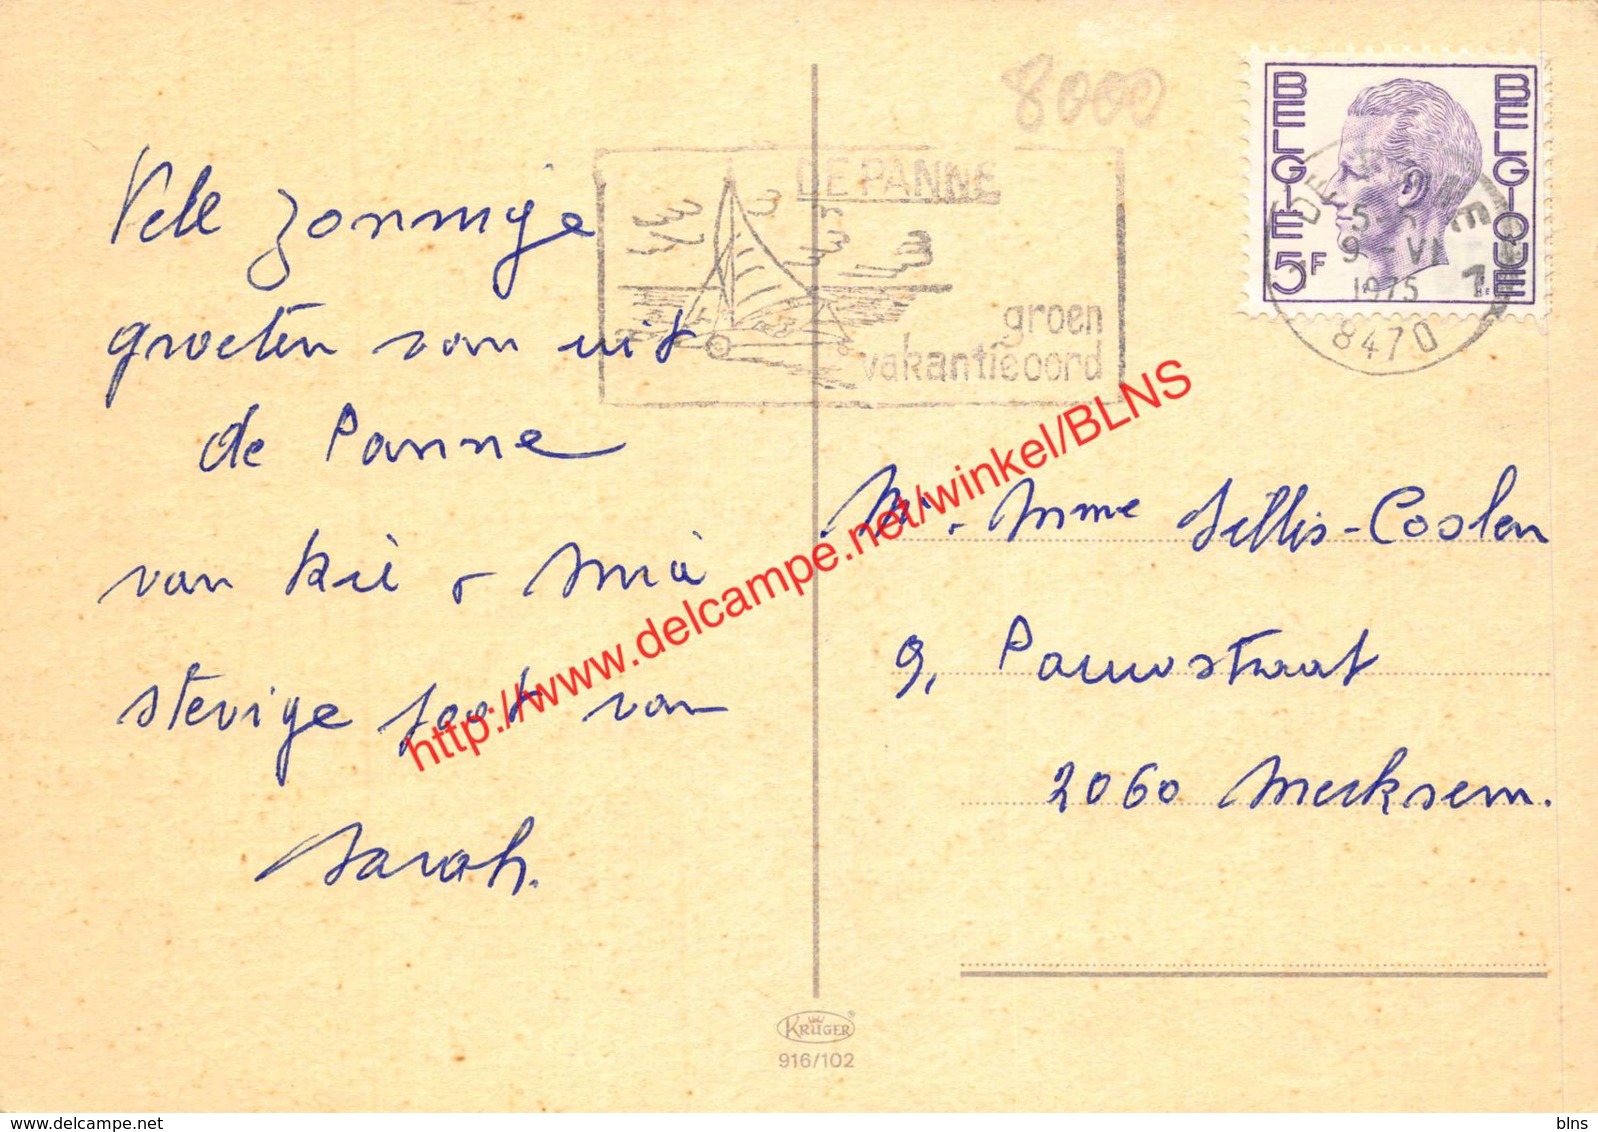 Vele zonnige
groeten van uit
de Panne
van Rie + Mia
stevige poot van
Sarah.
8000
DE PANNE
groen
vakantieoord
BELGIE 5F
BELGIQUE
DE PANNE 1
9 - VI
1975
8470
Mr. Mme Sillis-Coolen
9, Pauwstraat
2060 Merksem.
http://www.delcampe.net/winkel/BLNS
KRÜGER
916/102
delcampe.net
blns